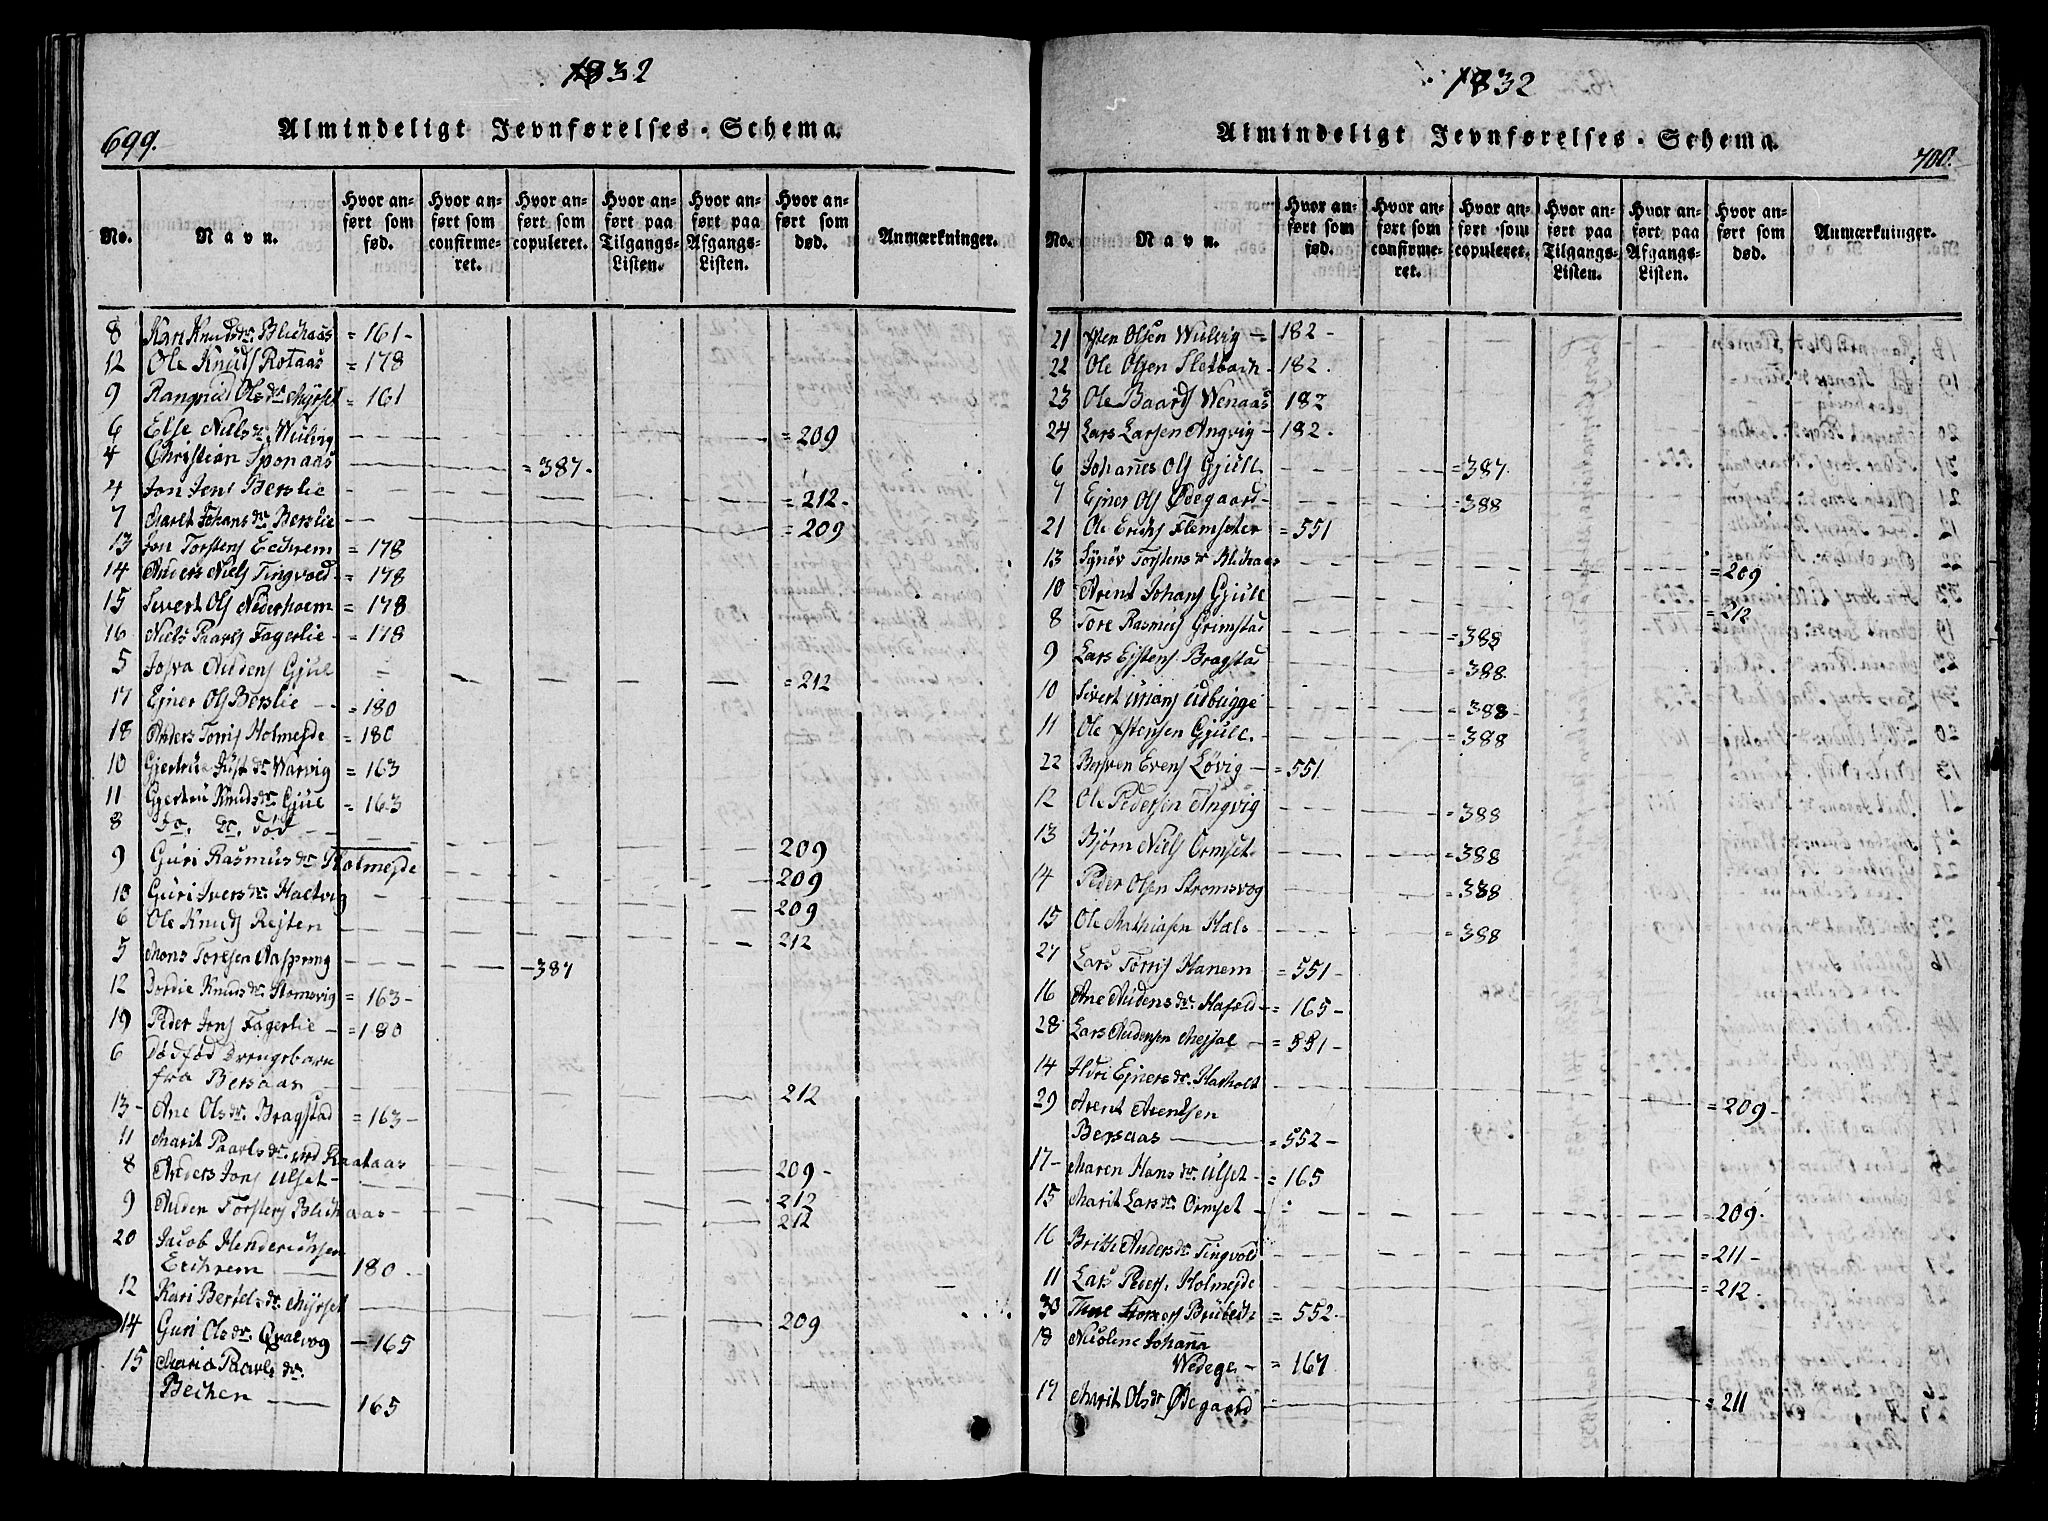 1832
699.
Almindeligt Jevnførelses-Schema.
No.
Navn.
Hvor anført som fød.
Hvor anført som confirmeret.
Hvor anført som copuleret.
Hvor anført paa Tilgangs-Listen.
Hvor anført paa Afgangs-Listen.
Hvor anført som død.
Anmærkninger.
8 Kari Knudsdr. Blichaas = 161 -
12 Ole Knuds Rotaas = 178
9 Rangnild Olsdr. Myrset = 161
6 Else Nielsdr. Wulvig = 209
4 Christian Sponaas = 387.
4 Jon Jens Berslie = 212 -
7 Marit Johansdr Berslie = 209
13 Jon Torstens Echrem = 178
14 Anders Niels Tingvold = 178
15 Sivert Ols Nederhoem = 178
16 Niels Paarls Fagerlie - = 178
5 Josva Audens Gjul = 212
17 Ejner Ols Berslie - - = 180
18 Anders Torris Holmejde = 180
10 Gjertru Just dr Warvig = 163
11 Gjertru Knudsdr. Gjul = 163
8 Do. Do. død 209
9 Guri Rasmusdr. Holmejde 209
10 Guri Iversdr. Haltvig 209
6 Ole Knuds Rejten 212
5 Mons Toresen Aaspring - 387
12 Dordie Knudsdr. Stomsvig = 163 -
19 Peder Jons Fagerlie - = 180
6 Dødfød Drengebarn
fra Bersaas 212
13 - Ane Olsdr. Bragstad = 163 -
11 Marit Paarlsdr. Raataas 209 -
8 Anders Jons Ulset - 212
9 Auden Torstens Blichaas 212
20 Jacob Henderichsen
Echrem 180
12 Kari Bertelsdr. Myrset 209
14 Guri Olsdr. Qvalvog - 165
15 Maria Paarlsdr.
Bechen 165
1832
700.
Almindeligt Jevnførelses-Schema.
No.
Navn.
Hvor anført som fød.
Hvor anført som confirmeret.
Hvor anført som copuleret.
Hvor anført paa Tilgangs-Listen.
Hvor anført paa Afgangs-Listen.
Hvor anført som død.
Anmærkninger.
21 Østen Olsen Wulvig - = 182 -
22 Ole Olsen Sletbach - 182.
23 Ole Baards Wenaas 182
24 Lars Larsen Angvig - 182.
6 Johanes Ols Gjull = 387.
7 Ejner Ols Ødegaard = 388
21 Ole Erichs Flemsæter = 551
13 Synøv Torstensdr Blichaas = 209
10 Arent Johans Gjull = 212
8 Tore Rasmus Grimstad = 388
9 Lars Ejstens Bragstad = 388.
10 Sivert Urians Udbugge = 388 -
11 Ole Østensen Gjull. = 388
22 Bersven Evens Løvig - = 551.
12 Ole Pedersen Angvig = 388
13 Bjørn Niels Ormset. = 388
14 Peder Olsen Stromsvog = 388
15 Ole Mathiasen Hals = 388
27 Lars Torris Hanem = 551 -
16 Ane Audensdr. Hafold = 165 -
28 Lars Audensen Mejsal = 551 -
14 Huri Ejnersdr. Harholt = 209 -
29 Arent Arentsen
Bersaas = 552 -
17 - Maren Hansdr. Ulset = 165
15 Marit Larsdr. Ormset = 209.
16 Brithe Andersdr. Tingvold = 211 -
11 Lars Peders. Holmejde = 212.
30 Brubech = 552.
18 Nicoline Johanna
Wedege - = 167
17 Marit Olsdr Ødegaard = 211